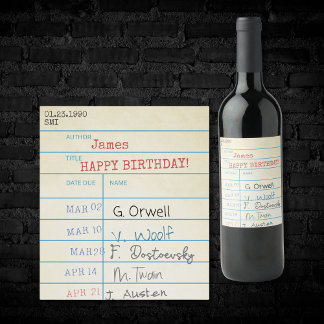 01.23.1990
SMI
AUTHOR James
TITLE HAPPY BIRTHDAY!
DATE DUE NAME
MAR 02 G. Orwell
MAR 10 V. Woolf
MAR 28 F. Dostoevsky
APR 14 M. Twain
APR 21 J. Austen
James
HAPPY BIRTHDAY!
G. Orwell
V. Woolf
F. Dostoevsky
M. Twain
J. Austen